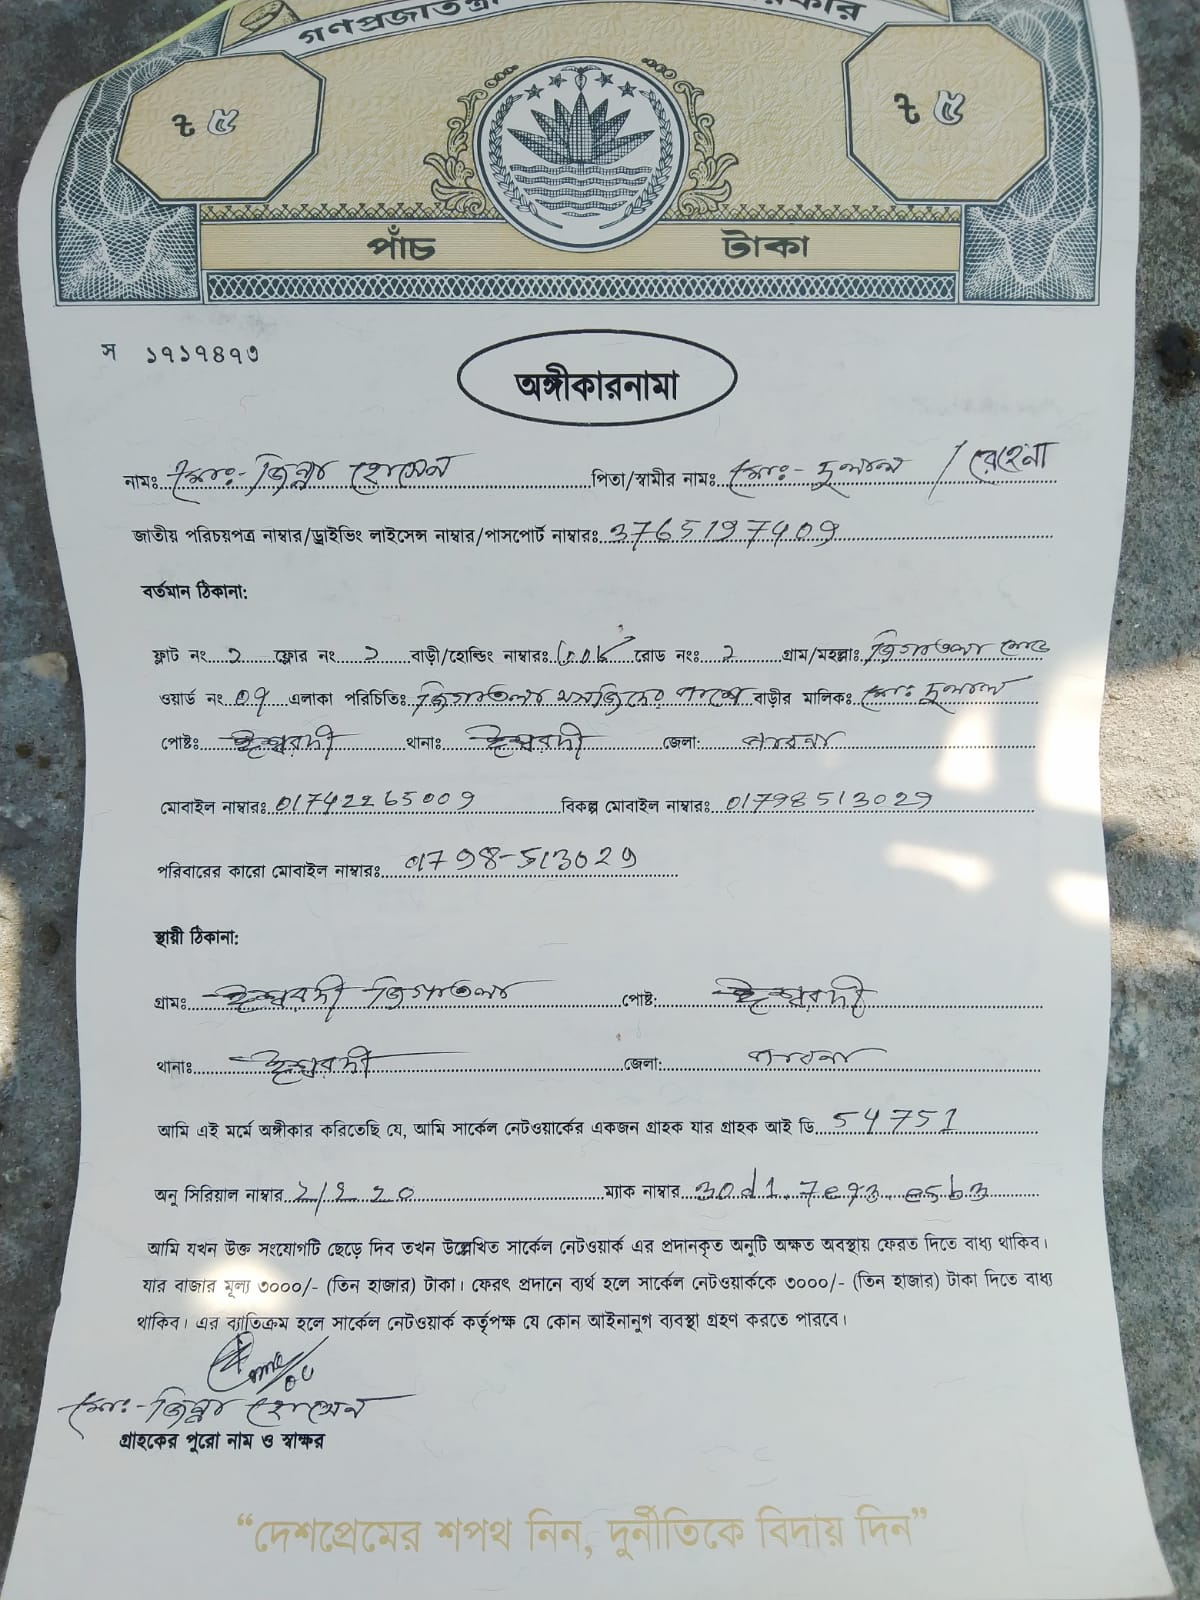 গণপ্রজাতন্ত্রী
৳ ৫
৳ ৫
পাঁচ টাকা
স ১৭১৭৪৭৩
অঙ্গীকারনামা
নামঃ মোঃ- জিন্না হোসেন পিতা/স্বামীর নামঃ মোঃ- দুলাল / রেহেনা
জাতীয় পরিচয়পত্র নাম্বার/ড্রাইভিং লাইসেন্স নাম্বার/পাসপোর্ট নাম্বারঃ 3765197409
বর্তমান ঠিকানা:
ফ্লাট নং ২ ফ্লোর নং ২ বাড়ী/হোল্ডিং নাম্বারঃ রোড নংঃ ২ গ্রাম/মহল্লাঃ জিগাতলা মোড়
ওয়ার্ড নং 07 এলাকা পরিচিতিঃ জিগাতলা মসজিদের পাশে বাড়ীর মালিকঃ মোঃ দুলাল
পোষ্টঃ ঈশ্বরদী থানাঃ ঈশ্বরদী জেলা: পাবনা
মোবাইল নাম্বারঃ 01742265009 বিকল্প মোবাইল নাম্বারঃ 01798513029
পরিবারের কারো মোবাইল নাম্বারঃ 01798-513029
স্থায়ী ঠিকানা:
গ্রামঃ ঈশ্বরদী জিগাতলা পোষ্ট: ঈশ্বরদী
থানাঃ ঈশ্বরদী জেলা: পাবনা
আমি এই মর্মে অঙ্গীকার করিতেছি যে, আমি সার্কেল নেটওয়ার্কের একজন গ্রাহক যার গ্রাহক আই ডি 54751
অনু সিরিয়াল নাম্বার ম্যাক নাম্বার 30d1.7e93.e5b3
আমি যখন উক্ত সংযোগটি ছেড়ে দিব তখন উল্লেখিত সার্কেল নেটওয়ার্ক এর প্রদানকৃত অনুটি অক্ষত অবস্থায় ফেরত দিতে বাধ্য থাকিব।
যার বাজার মূল্য ৩০০০/- (তিন হাজার) টাকা। ফেরৎ প্রদানে ব্যর্থ হলে সার্কেল নেটওয়ার্ককে ৩০০০/- (তিন হাজার) টাকা দিতে বাধ্য
থাকিব। এর ব্যাতিক্রম হলে সার্কেল নেটওয়ার্ক কর্তৃপক্ষ যে কোন আইনানুগ ব্যবস্থা গ্রহণ করতে পারবে।
মোঃ- জিন্না হোসেন
গ্রাহকের পুরো নাম ও স্বাক্ষর
“দেশপ্রেমের শপথ নিন, দুর্নীতিকে বিদায় দিন”